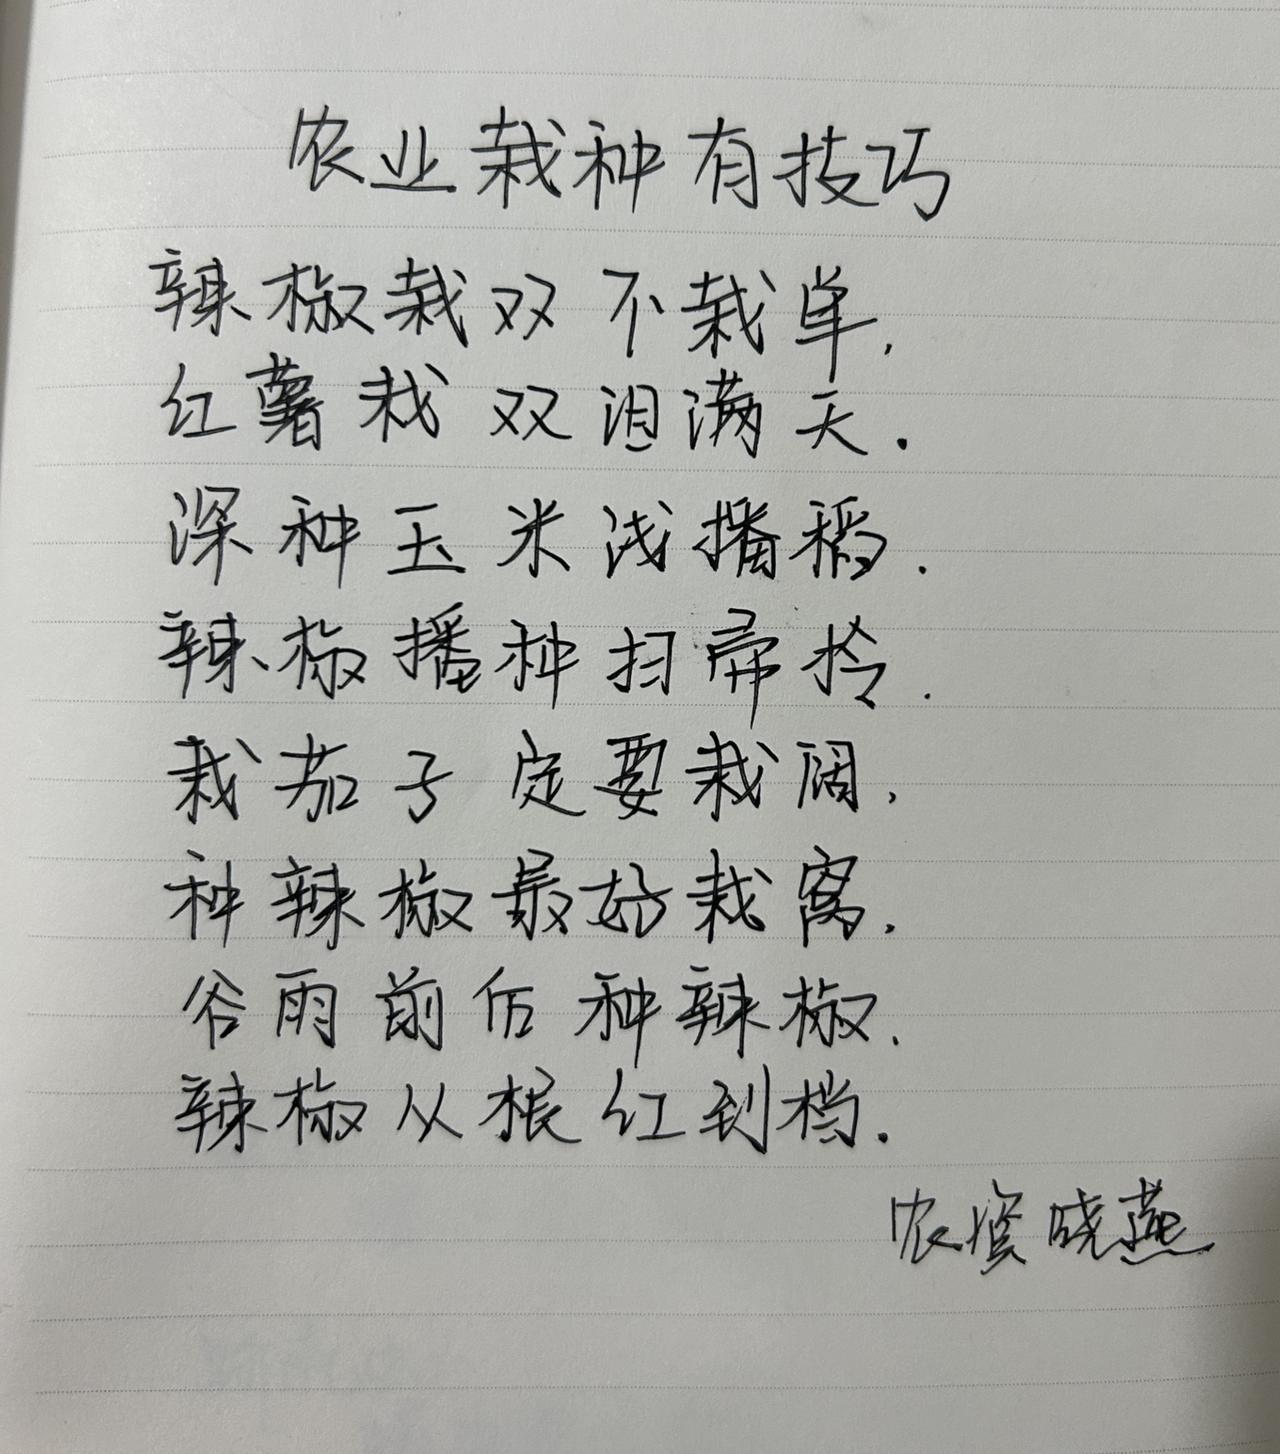 农业栽种有技巧
辣椒栽双不栽单,
红薯栽双泪满天.
深种玉米浅播稻.
辣椒播种扫帚拎.
栽茄子定要栽阔,
种辣椒最好栽窝.
谷雨前后种辣椒.
辣椒从根红到档.
农资晓燕